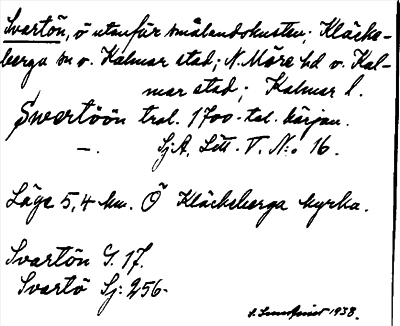 Svartön, ö utanför smålandskusten; Kläcke-
berga sn o. Kalmar stad; N. Möre hd o. Kal-
mar stad; Kalmar l.
Swartöön trol. 1700-tal. början.
—. Sj.A. Litt. V. N:o 16.
Läge 5,4 km. Ö Kläckeberga kyrka.
Svartön G. 17.
Svartö Sj: 256.
1938.